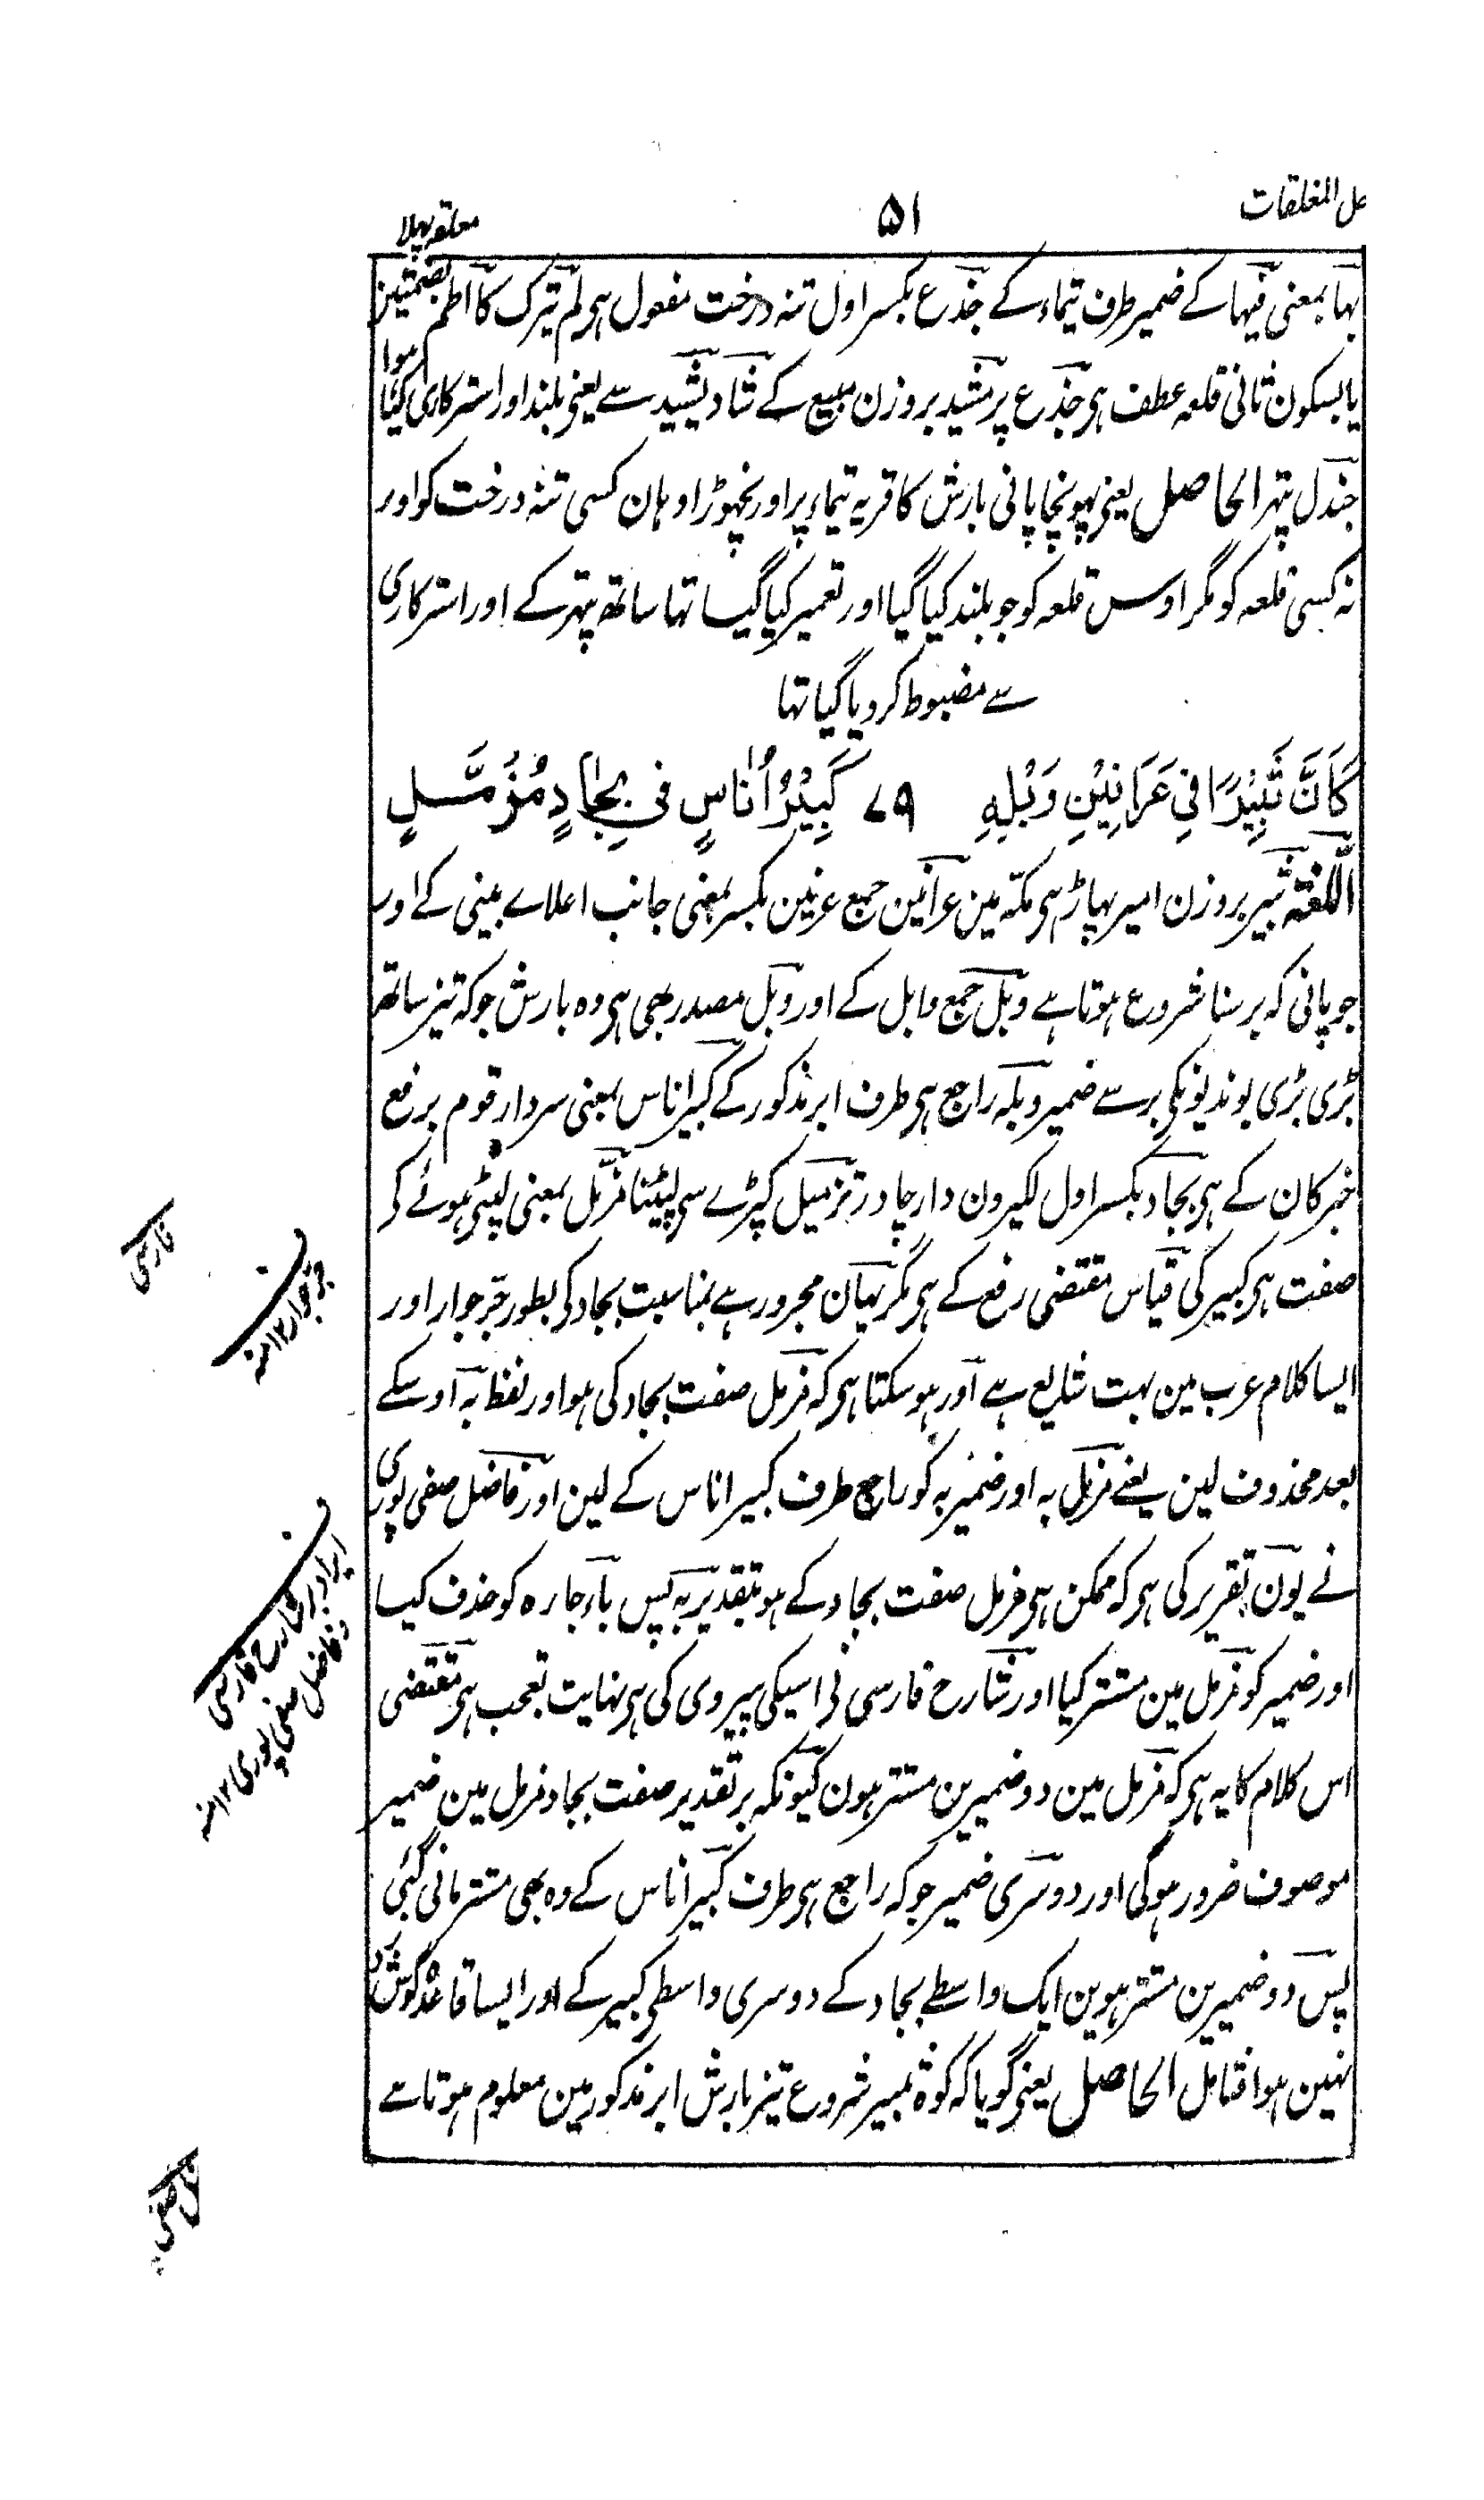 حل المغلقات
۵۱
معلقہ پہلا
بہا بمعنی فیہا کے ضمیر طرف تیماء کے جذع بکسر اول تنہ درخت مفعول ہی لم یترک کا اطم بضمتین
یا بسکون ثانی قلعہ عطف ہی جذع پر مشید بروزن مبیع کے شاد یشید سے یعنی بلند اور استرکاری کیا ہوا
جندل پتہر الحاصل یعنی پہونچا پانی بارش کا قریہ تیماء پر اور نچہوڑا وہان کسی تنہ درخت کو اور
نہ کسی قلعہ کو مگر اوس قلعہ کو جو بلند کیا گیا اور تعمیر کیا گیا تہا ساتھ پتہر کے اور استرکاری
سے مضبوط کر دیا گیا تہا
كَأَنَّ ثَبِيْرًا فِي عَرَانِيْنِ وَبْلِهٖ ۷۹ كَبِيْرُ اُنَاسٍ فِي بِجَادٍ مُزَمَّلٍ
اللغۃ ثبیر بروزن امیر پہاڑ ہی مکہ مین عرانین جمع عرنین بکسر بمعنی جانب اعلاے بینی کے اور
جو پانی کہ برسنا شروع ہوتا ہے وبل جمع وابل کے اور وبل مصدر بھی ہی وہ بارش جو کہ تیز ساتھ
بڑی بڑی بوندیونکی برسے ضمیر وبلہ راجع ہی طرف ابر مذکور کے کبیر اناس بمعنی سردار قوم برفع
خبر کان کے ہی بجاد بکسر اول لکیرون دار چادر تزمیل کپڑے سی لپیٹنا مزمّل بمعنی لپٹی ہوئے کر
صفت ہی کبیر کی قیاس مقتضی رفع کے ہی مگر یہان مجرور ہے بمناسبت بجاد کی بطور جر جوار اور
ایسا کلام عرب مین بہت شایع ہے اور ہو سکتا ہی کہ مزمل صفت بجاد کی ہو اور لفظ بہ اوسکے
بعد محذوف لین یعنے مزمل بہ اور ضمیر بہ کو راجع طرف کبیر اناس کے لین اور فاضل صفی پوری
نے یون تقریر کی ہی کہ ممکن ہی مزمل صفت بجاد کے ہو بتقدیر بہ پس باء جارہ کو حذف کیا
اور ضمیر کو مزمل مین مستتر کیا اور شارح فارسی نی اسیکی پیروی کی ہی نہایت تعجب ہی مقتضی
اس کلام کا یہ ہی کہ مزمل مین دو ضمیرین مستتر ہون کیونکہ بر تقدیر صفت بجاد مزمل مین ضمیر
موصوف ضرور ہوگی اور دوسری ضمیر جو کہ راجع ہی طرف کبیر اناس کے وہ بھی مستتر مانی گئی
پس دو ضمیرین مستتر ہوین ایک واسطے بجاد کے دوسری واسطی کبیر کے اور ایسا قاعدہ گوش زد
نہین ہوا فتامل الحاصل یعنی گویا کہ کوہ ثبیر شروع تیز بارش ابر مذکور مین معلوم ہوتا ہے
فارسی
جر جوار ۱۲ منہ
ایراد بر شارح فارسی
و فاضل صفی پوری ۱۲ منہ